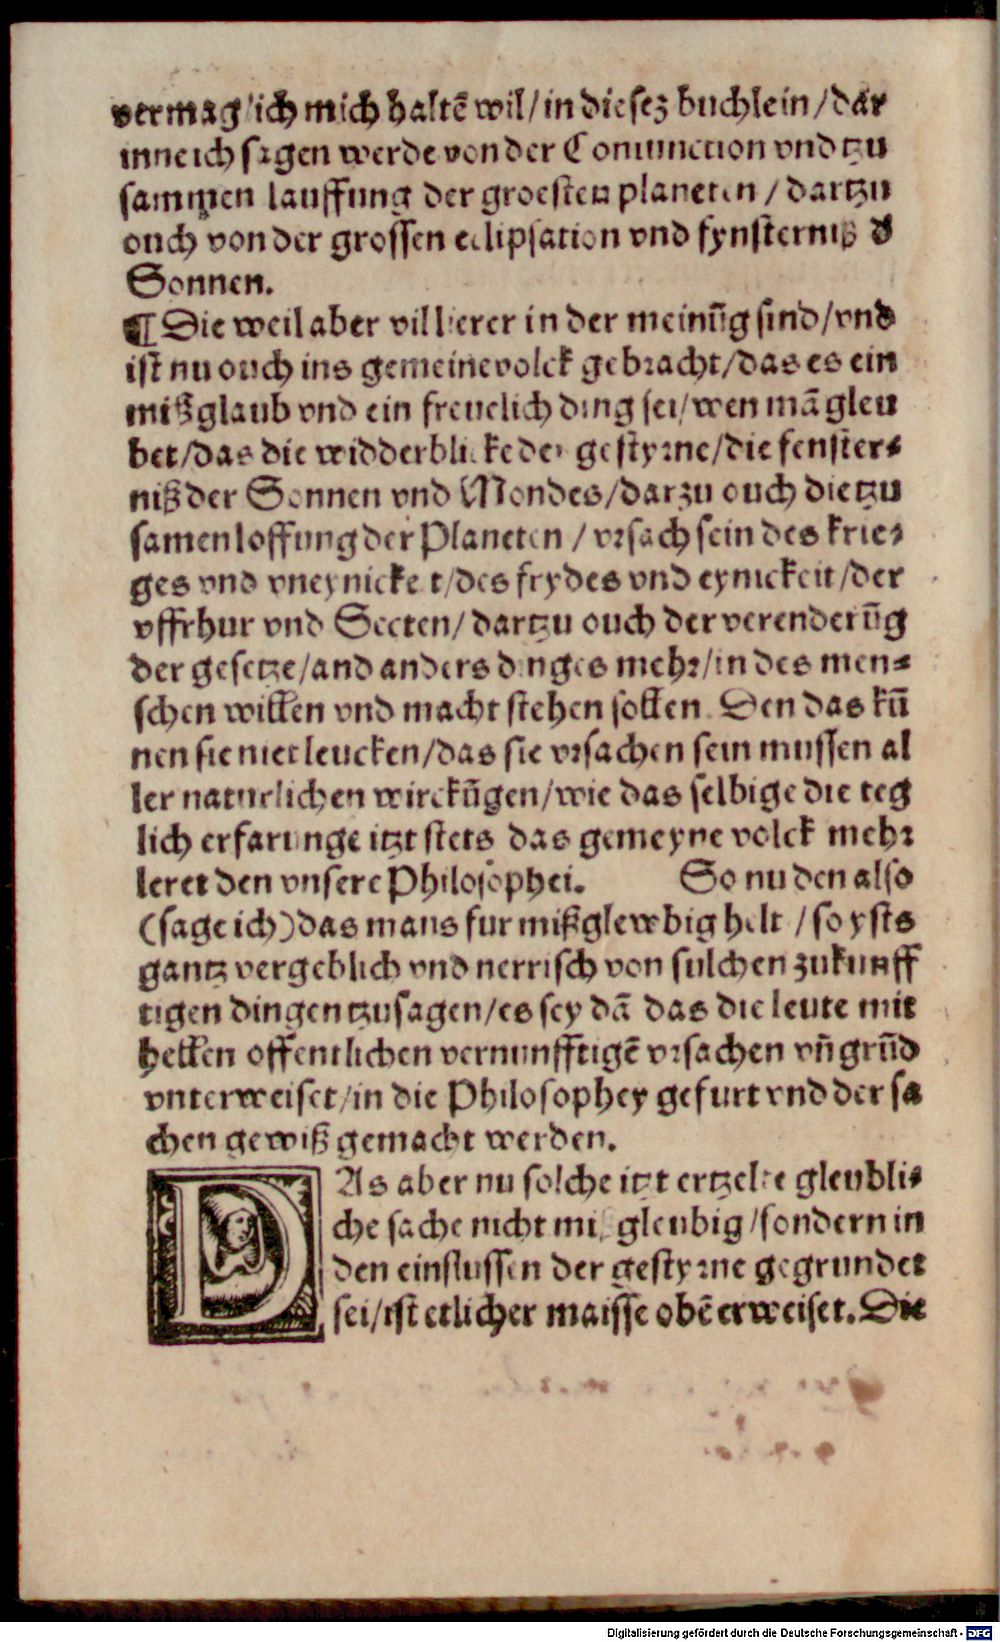 vermag/ich mich haltē wil/in diesez buchlein/dar
inne ich sagen werde von der Coniunction vnd tzu
sammen lauffung der groesten planeten/dartzu
ouch von der grossen eclipsation vnd fynsterniß d̕
Sonnen.
¶ Die weil aber vil lerer in der meinūg sind/vnd
ist nu ouch ins gemeine volck gebracht/das es ein
mißglaub vnd ein freuelich ding sei/wen mā gleu
bet/das die widderblicke der gestyrne/die fenster-
niß der Sonnen vnd Mondes/darzu ouch die tzu
samenloffung der Planeten/vrsach sein des krie-
ges vnd vneynickeit/des frydes vnd eynickeit/der
vffrhur vnd Secten/dartzu ouch der verenderūg
der gesetze/and anders dinges mehr/in des men-
schen willen vnd macht stehen sollen. Den das kū
nen sie niet leucken/das sie vrsachen sein mussen al
ler naturlichen wirckūgen/wie das selbige die teg
lich erfarunge itzt stets das gemeyne volck mehr
leret den vnsere Philosophei. So nu den also
(sage ich) das mans fur mißglewbig helt/so ysts
gantz vergeblich vnd nerrisch von sulchen zukunff
tigen dingen tzusagen/es sey dā das die leute mit
hellen offentlichen vernunfftigē vrsachen vn̄ grūd
vnterweiset/in die Philosophey gefurt vnd der sa
chen gewiß gemacht werden.
DAs aber nu solche itzt ertzelte gleubli-
che sache nicht misgleubig/sondern in
den einflussen der gestyrne gegrundet
sei/ist etlicher maisse obē erweiset. Die
Digitalisierung gefördert durch die Deutsche Forschungsgemeinschaft - DFG